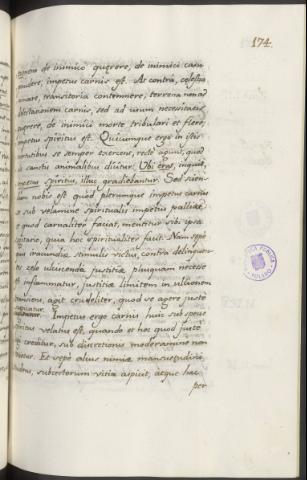 174.
de inimico quærere, de inimici cau
impetus carnis est. At contra, cœlestia
amare, transitoria contemnere, terrena non ad
delectationem carnis, sed ad usum necessitatis
quærere, de inimici morte tribulari et flere,
impetus spiritus est. Quicumque ergo in istis
virtutibus se semper exercens, recte apud, quod
sanctis animalibus dicitur: Ubi erat, inquit,
impetus spiritus, illuc gradiebantur. Sed scien
dum nobis est quod plerumque impetus carnis
sub velamine spiritualis impetus palliat
quod carnaliter faciat, mentitur sibi ipsa
cogitatio, quia hoc spiritualiter facit. Nam sæpe
iracundiæ stimulis victus, contra delinquen
tes zelo ulciscenda justitiæ plusquam necesse
est inflammatur, justitiæ limitem in ultionem
agit crudeliter, quod se agere juste
Impetus ergo carnis huic sub specie
spiritus velatus est, quando et hoc quod juste
creditur, sub discretionis moderamine non
Et sæpe alius nimiæ mansuetudini
studens, subiectorum vitia aspicit, atque hæc
per
BIBLIOTECA PUBLICA
TOLEDO